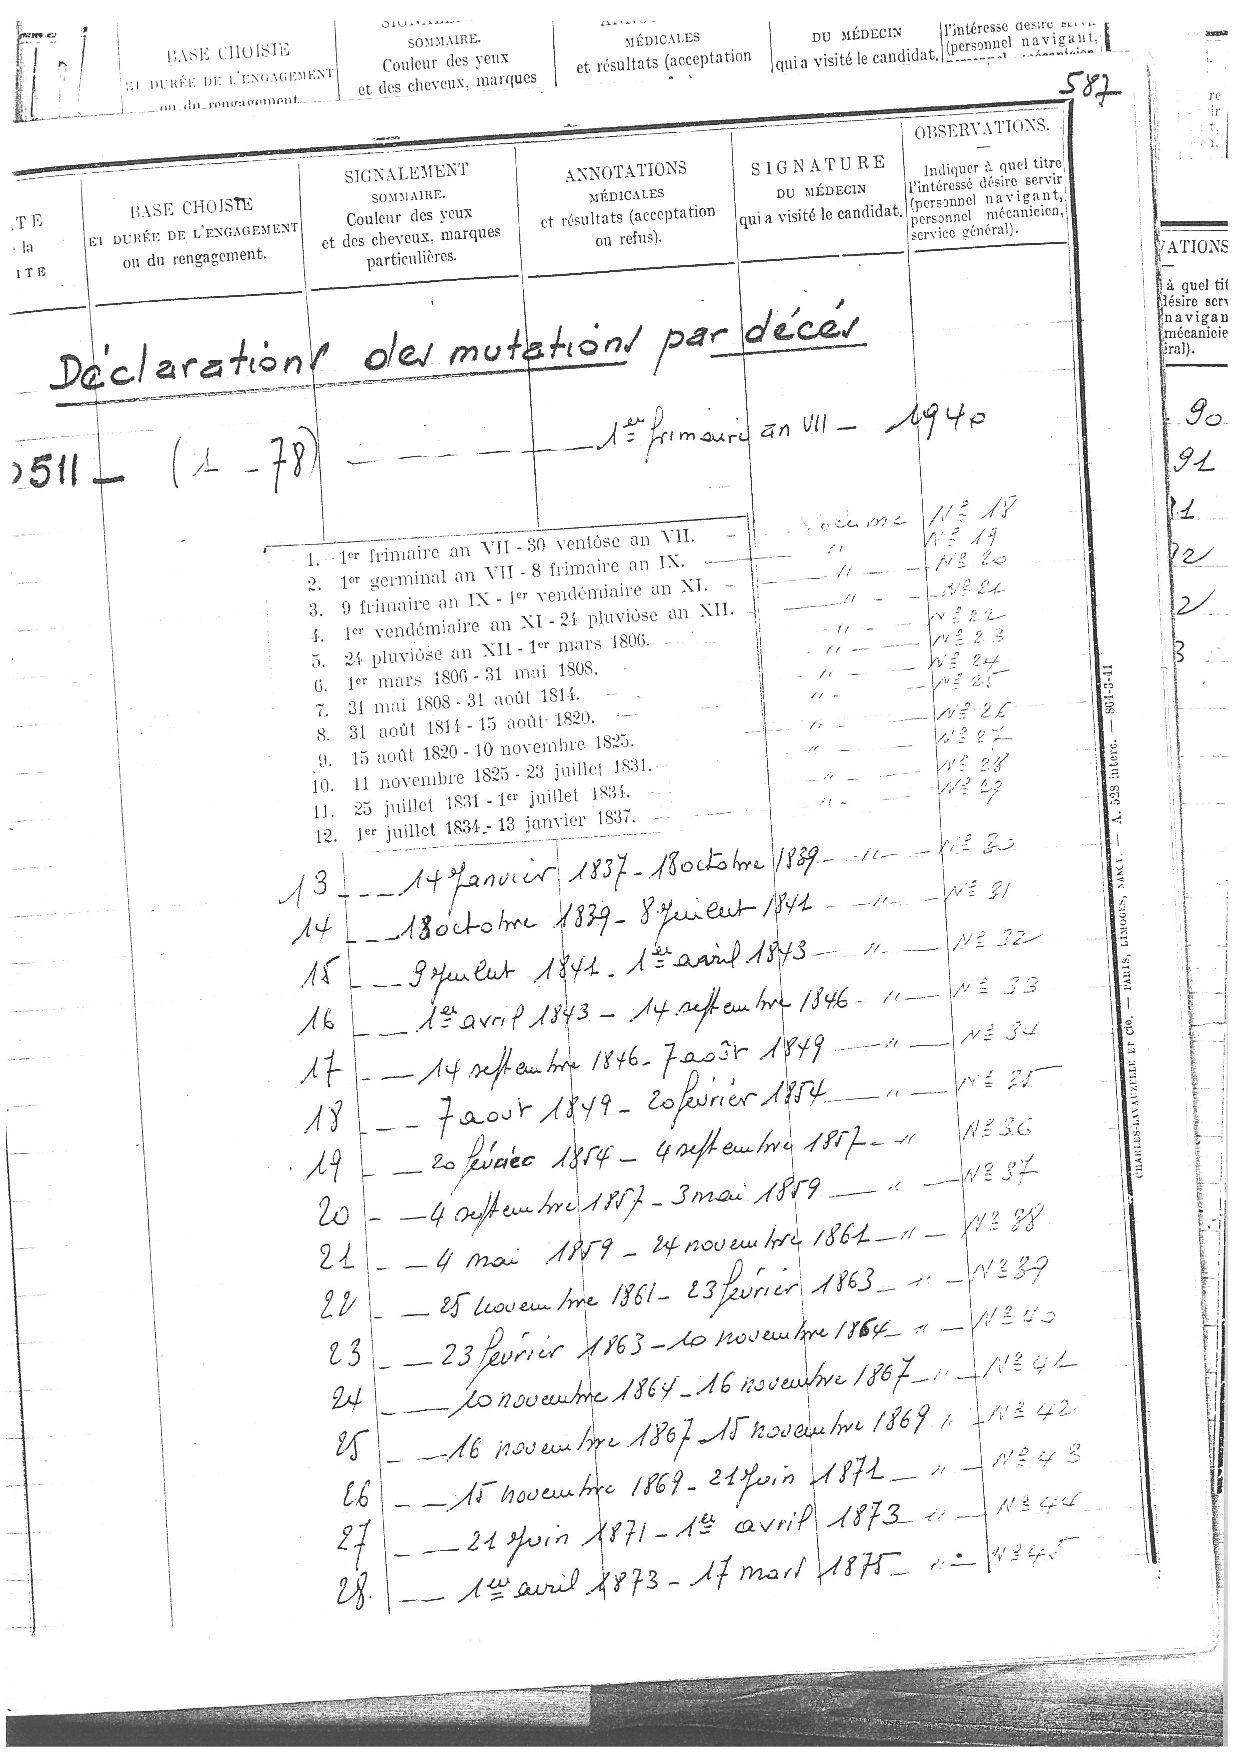 BASE CHOISIE
ET DURÉE DE L'ENGAGEMENT
ou du rengagement.
SOMMAIRE.
Couleur des yeux
et des cheveux, marques
MÉDICALES
et résultats (acceptation
DU MÉDECIN
qui a visité le candidat.
l'intéressé désire servir
(personnel navigant,
587
TE
la
ITE
BASE CHOISIE
ET DURÉE DE L'ENGAGEMENT
ou du rengagement.
SIGNALEMENT
SOMMAIRE.
Couleur des yeux
et des cheveux, marques
particulières.
ANNOTATIONS
MÉDICALES
et résultats (acceptation
ou refus).
SIGNATURE
DU MÉDECIN
qui a visité le candidat.
OBSERVATIONS.
Indiquer à quel titre
l'intéressé désire servir
(personnel navigant,
personnel mécanicien,
service général).
VATIONS
à quel tit
désire serv
navigan
mécanicie
éral).
Déclarations des mutations par décés
511 - (1 - 78) - - - - 1er frimaire an VII - 1940
1. 1er frimaire an VII - 30 ventôse an VII. - Volume Nº 18
2. 1er germinal an VII - 8 frimaire an IX. - " Nº 19
3. 9 frimaire an IX - 1er vendémiaire an XI. - " - Nº 20
4. 1er vendémiaire an XI - 24 pluviôse an XII. - " - Nº 21
5. 24 pluviôse an XII - 1er mars 1806. - " - Nº 22
6. 1er mars 1806 - 31 mai 1808. - " - Nº 23
7. 31 mai 1808 - 31 août 1814. - " - Nº 24
8. 31 août 1814 - 15 août 1820. - " - Nº 25
9. 15 août 1820 - 10 novembre 1825. " Nº 26
10. 11 novembre 1825 - 23 juillet 1831. - " Nº 27
11. 25 juillet 1831 - 1er juillet 1834. - " - Nº 28
12. 1er juillet 1834 - 13 janvier 1837. - " - Nº 29
13 - - - 14 Janvier 1837 - 18 octobre 1839 - " - Nº 30
14 - - - 18 octobre 1839 - 8 Juillet 1841 - " - Nº 31
15 - - 9 Juillet 1841 - 1er avril 1843 - " - Nº 32
16 - - 1er avril 1843 - 14 septembre 1846 - " - Nº 33
17 - - 14 septembre 1846 - 7 août 1849 - " - Nº 34
18 - - - 7 aout 1849 - 20 février 1854 - " - Nº 35
19 - - 20 février 1854 - 4 septembre 1857 - " Nº 36
20 - - 4 septembre 1857 - 3 mai 1859 - " - Nº 37
21 - - 4 mai 1859 - 24 novembre 1861 - " - Nº 38
22 - - 25 novembre 1861 - 23 février 1863 - " - Nº 39
23 - - 23 février 1863 - 10 novembre 1864 - " - Nº 40
24 - - 10 novembre 1864 - 16 novembre 1867 - " - Nº 41
25 - 16 novembre 1867 - 15 novembre 1869 " - Nº 42
26 - - 15 novembre 1869 - 21 Juin 1871 - " - Nº 43
27 - - 21 Juin 1871 - 1er avril 1873 " - Nº 44
28. - - 1er avril 1873 - 17 mars 1875 - " - Nº 45
90
91
CHARLES-LAVAUZELLE ET Cie. - PARIS, LIMOGES, NANCY. - A. 528 interc. - 864-3-41